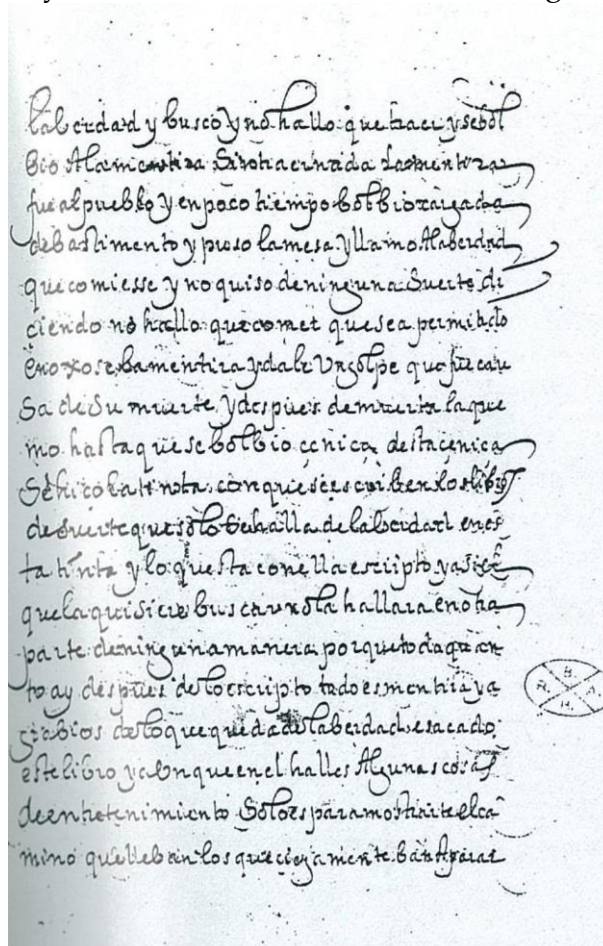 laberdad y busco y no hallo que traer y se bol
bio A la mentira Sin traer nada la mentira
fue al pueblo y en poco tiempo bolbio cargada
de bastimento y puso la mesa y llamo A laberdad
que comiesse y no quiso de ninguna Suerte di
ciendo no hallo que comer que sea permitido
enoxose la mentira y dale Un golpe que fue cau
Sa de Su muerte y despues de muerta la que
mo hasta que se bolbio cenica destacenica
Se hiço la tinta con que se escriben los libros
de suerte que solo Se halla de laberdad en es
ta tinta y lo questa con ella escripto y asi el
que la quisiere buscar no la hallara en otra
parte de ninguna manera porque todo quan
to ay despues de lo escripto todo es mentira y a
de lo que queda de laberdad se sacado
este libro y aUnque en el halles Algunas cosas
de entretenimiento Solo es para mostrarte el ca
mino que lleban los que ciegamente ban A parar
B. R. A. H.